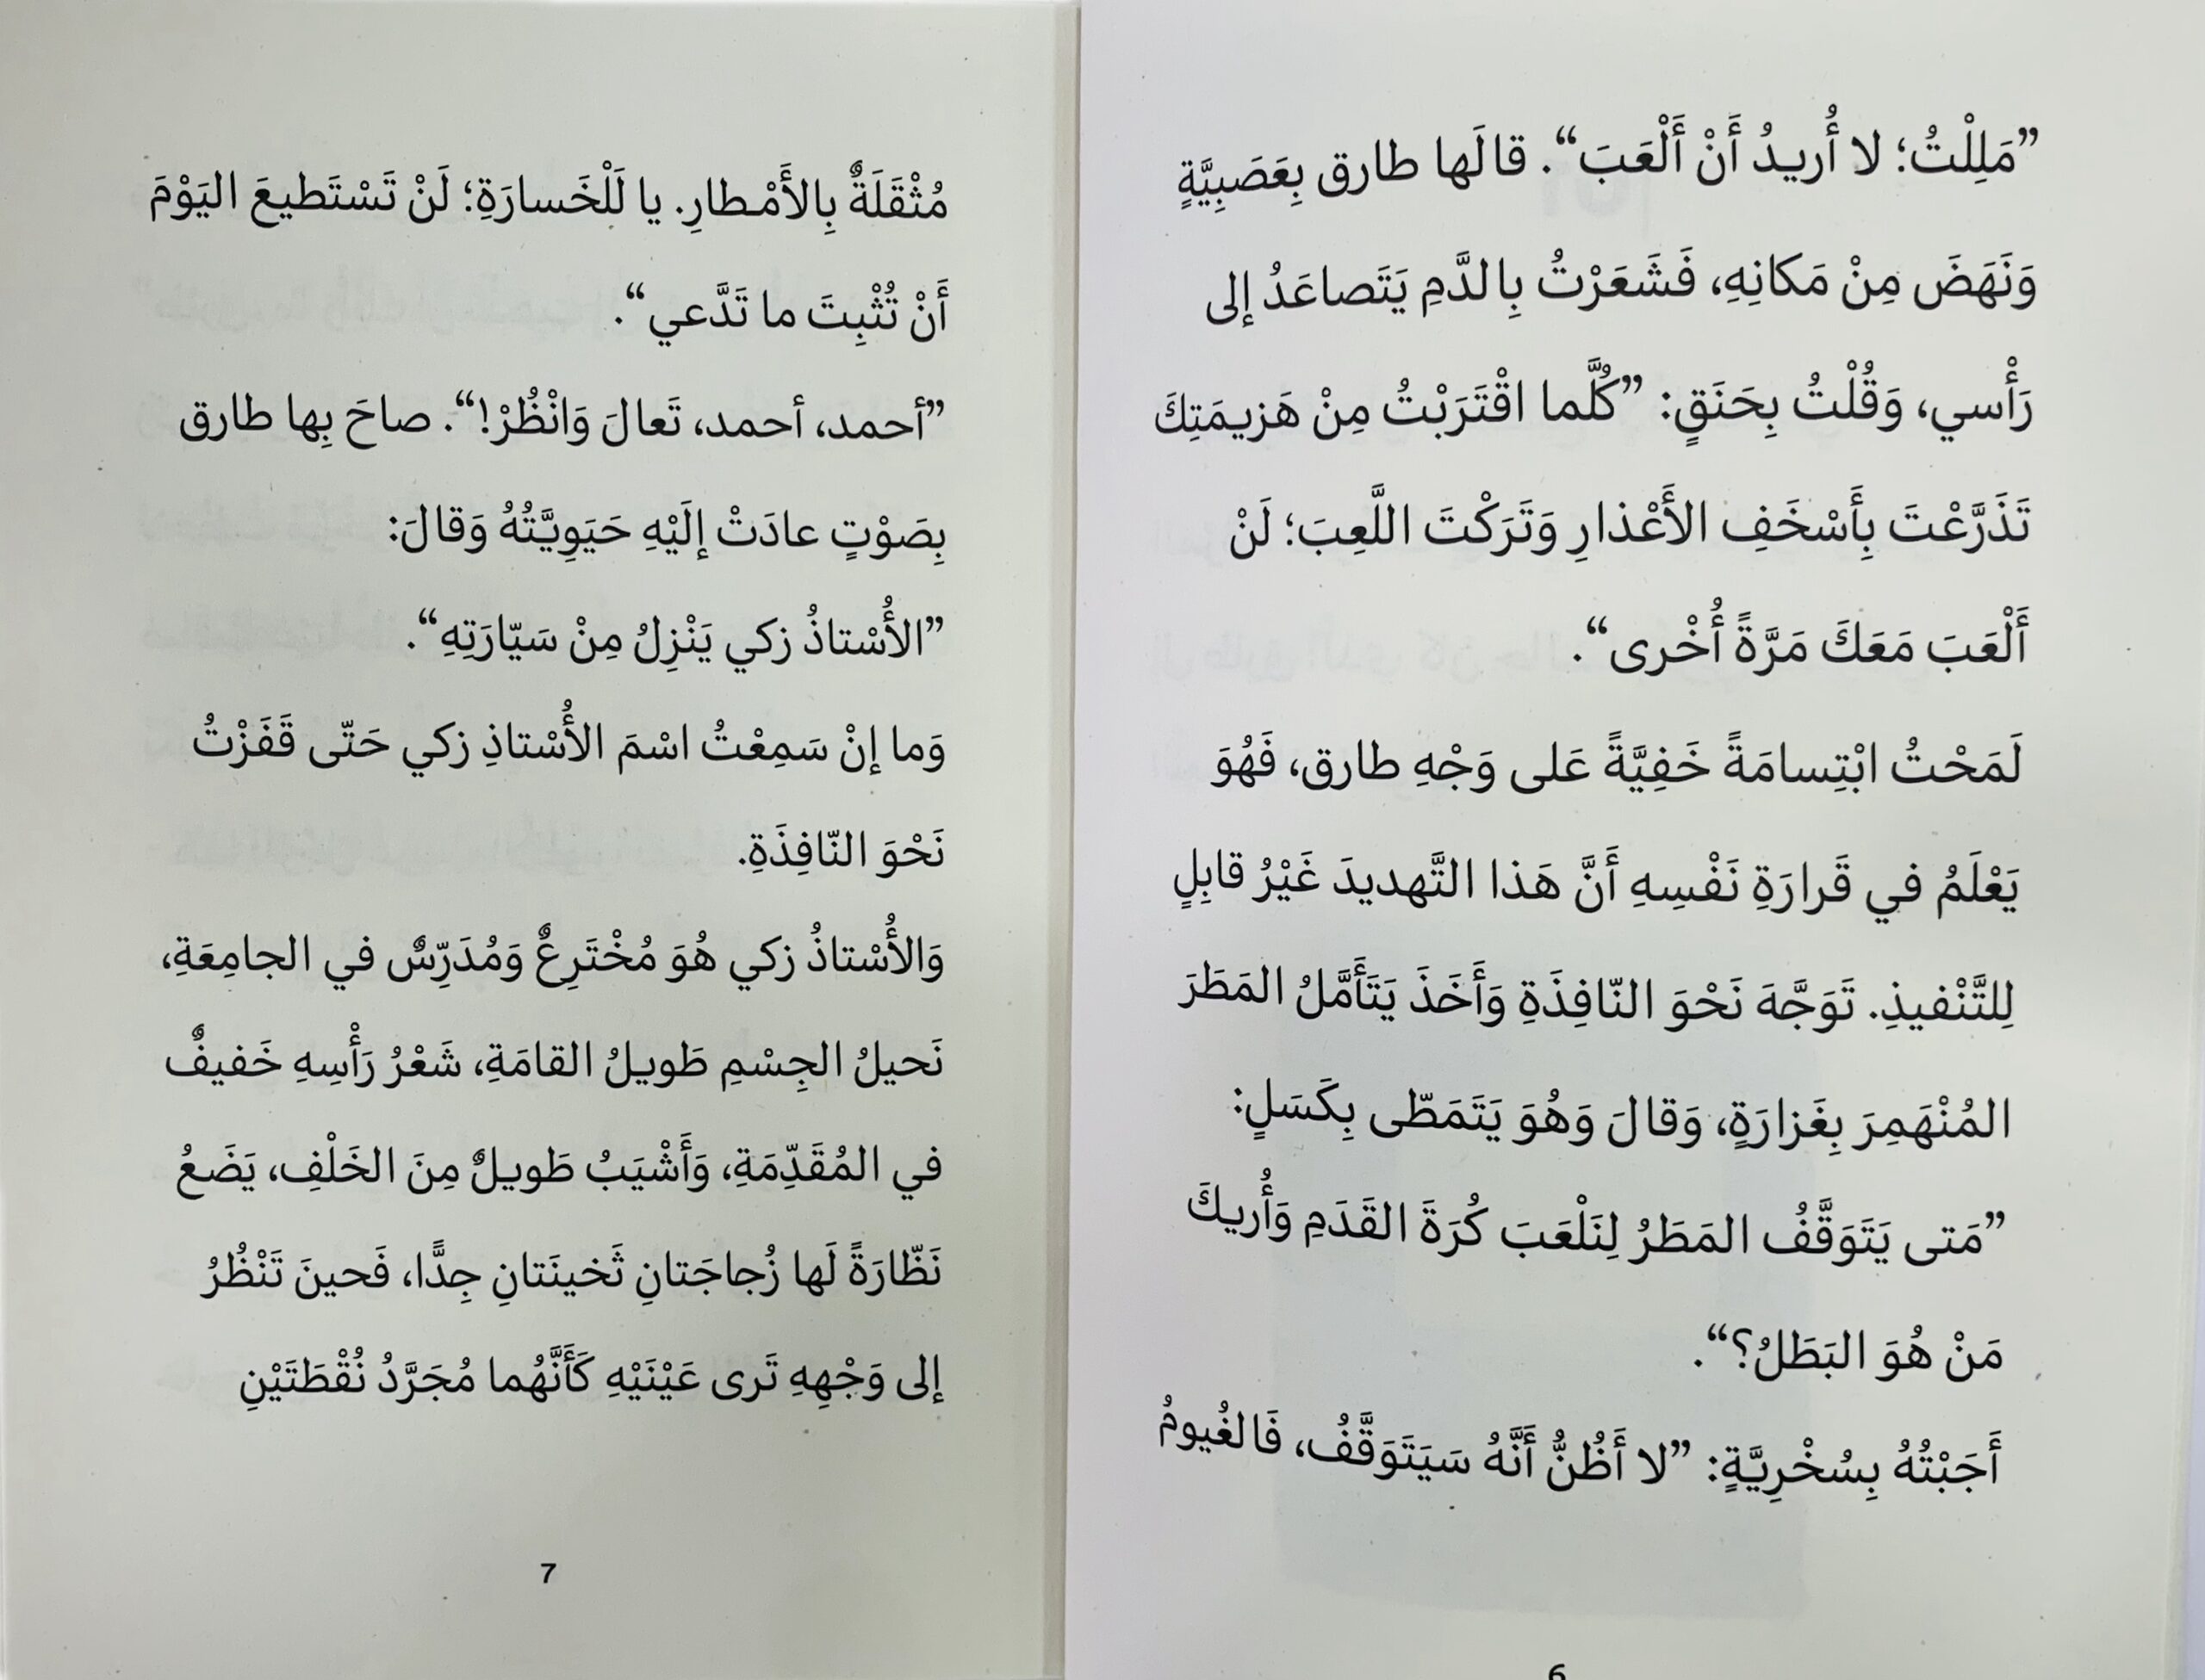 ”مَلِلْتُ؛ لا أُريدُ أَنْ أَلْعَبَ“. قالَها طارق بِعَصَبِيَّةٍ
وَنَهَضَ مِنْ مَكانِهِ، فَشَعَرْتُ بِالدَّمِ يَتَصاعَدُ إلى
رَأْسي، وَقُلْتُ بِحَنَقٍ: ”كُلَّما اقْتَرَبْتُ مِنْ هَزيمَتِكَ
تَذَرَّعْتَ بِأَسْخَفِ الأَعْذارِ وَتَرَكْتَ اللَّعِبَ؛ لَنْ
أَلْعَبَ مَعَكَ مَرَّةً أُخْرى“.
لَمَحْتُ ابْتِسامَةً خَفِيَّةً عَلى وَجْهِ طارق، فَهُوَ
يَعْلَمُ في قَرارَةِ نَفْسِهِ أَنَّ هَذا التَّهديدَ غَيْرُ قابِلٍ
لِلتَّنْفيذِ. تَوَجَّهَ نَحْوَ النّافِذَةِ وَأَخَذَ يَتَأَمَّلُ المَطَرَ
المُنْهَمِرَ بِغَزارَةٍ، وَقالَ وَهُوَ يَتَمَطّى بِكَسَلٍ:
”مَتى يَتَوَقَّفُ المَطَرُ لِنَلْعَبَ كُرَةَ القَدَمِ وَأُريكَ
مَنْ هُوَ البَطَلُ؟“.
أَجَبْتُهُ بِسُخْرِيَّةٍ: ”لا أَظُنُّ أَنَّهُ سَيَتَوَقَّفُ، فَالغُيومُ
6
مُثْقَلَةٌ بِالأَمْطارِ. يا لَلْخَسارَةِ؛ لَنْ تَسْتَطيعَ اليَوْمَ
أَنْ تُثْبِتَ ما تَدَّعي“.
”أحمد، أحمد، تَعالَ وَانْظُرْ!“. صاحَ بِها طارق
بِصَوْتٍ عادَتْ إلَيْهِ حَيَوِيَّتُهُ وَقالَ:
”الأُسْتاذُ زكي يَنْزِلُ مِنْ سَيّارَتِهِ“.
وَما إنْ سَمِعْتُ اسْمَ الأُسْتاذِ زكي حَتّى قَفَزْتُ
نَحْوَ النّافِذَةِ.
وَالأُسْتاذُ زكي هُوَ مُخْتَرِعٌ وَمُدَرِّسٌ في الجامِعَةِ،
نَحيلُ الجِسْمِ طَويلُ القامَةِ، شَعْرُ رَأْسِهِ خَفيفٌ
في المُقَدِّمَةِ، وَأَشْيَبُ طَويلٌ مِنَ الخَلْفِ، يَضَعُ
نَظّارَةً لَها زُجاجَتانِ ثَخينَتانِ جِدًّا، فَحينَ تَنْظُرُ
إلى وَجْهِهِ تَرى عَيْنَيْهِ كَأَنَّهُما مُجَرَّدُ نُقْطَتَيْنِ
7